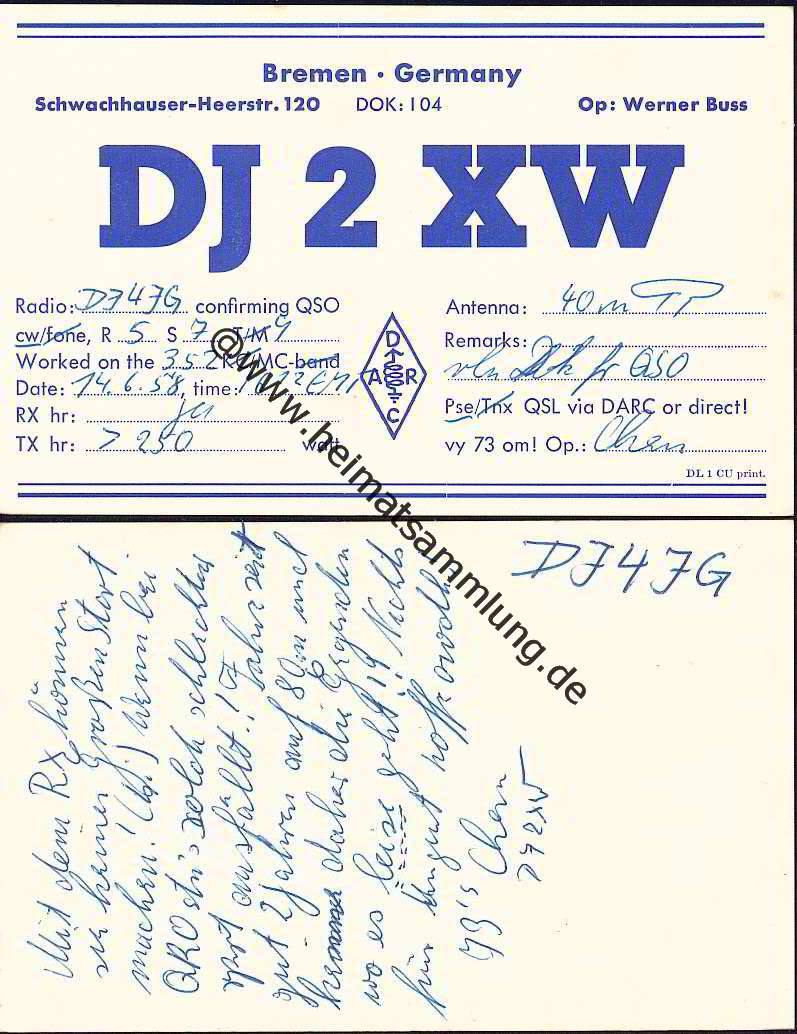 Bremen · Germany
Schwachhauser-Heerstr. 120 DOK: I04 Op: Werner Buss
DJ 2 XW
Radio: DJ4JG confirming QSO
cw/fone, R 5 S 7 T/M
Worked on the 3,5 KC/MC-band
Date: 14.6.58, time:
RX hr: ja
TX hr: > 250 watt
DARC
Antenna: 40 m
Remarks:
vln fr QSO
Pse/Tnx QSL via DARC or direct!
vy 73 om! Op.: Chen
DL 1 CU print.
@www.heimatsammlung.de
DJ4JG
Mit dem RX können
sie keinen großen Start
machen! (hi) Wenn bei
QRO stn's solch schlechter
rprt ausfällt! Fahre seit
gut 2 Jahren auf 80 m und
kenne daher die Gegenden
wo es leise geht! Nichts
für ungut
73's Chen
DJ2XW